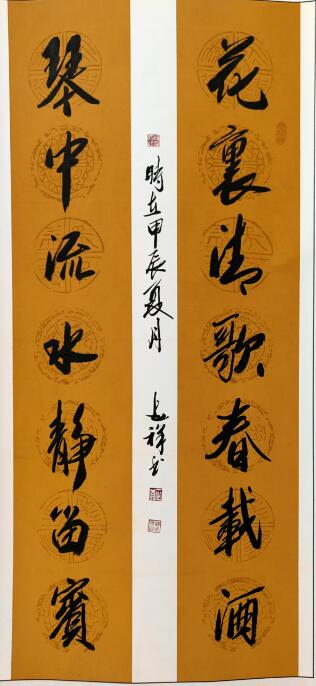 花裏清歌春載酒
琴中流水靜留賓
時在甲辰夏月
祥书